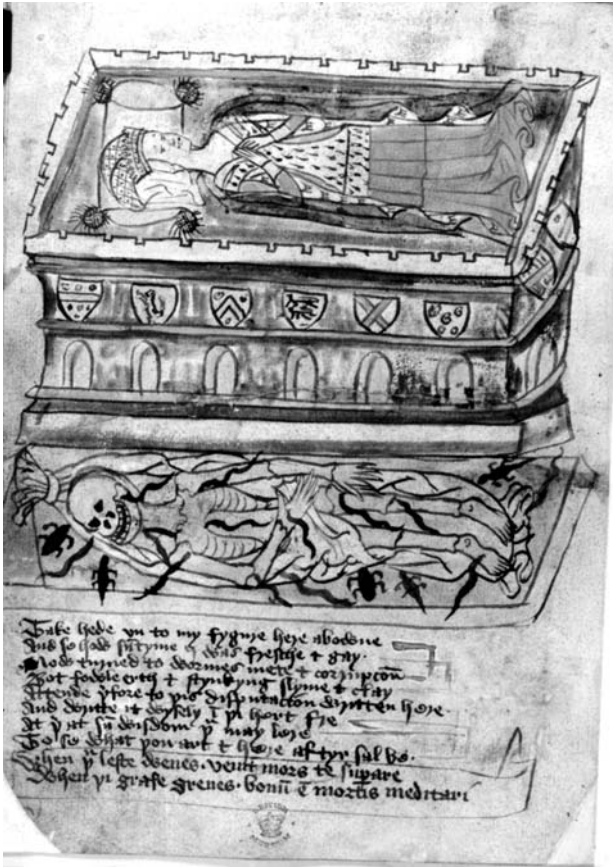 Take hede vn to my fygure here abowne
And se how sūtyme I was fresche & gay
Now turned to wormes mete & corrupcoū
Bot fowle erth & stynkyng slyme & clay
Attende þfore to þis disputacion written here
And writte it wysely ī þi hert fre
At þ at sū wisdom þ may lere
To se what þou art & here aftyr sal be
When þ leste wenes. venit mors te supare
When þi grafe grenes. bonū ē mortis meditari